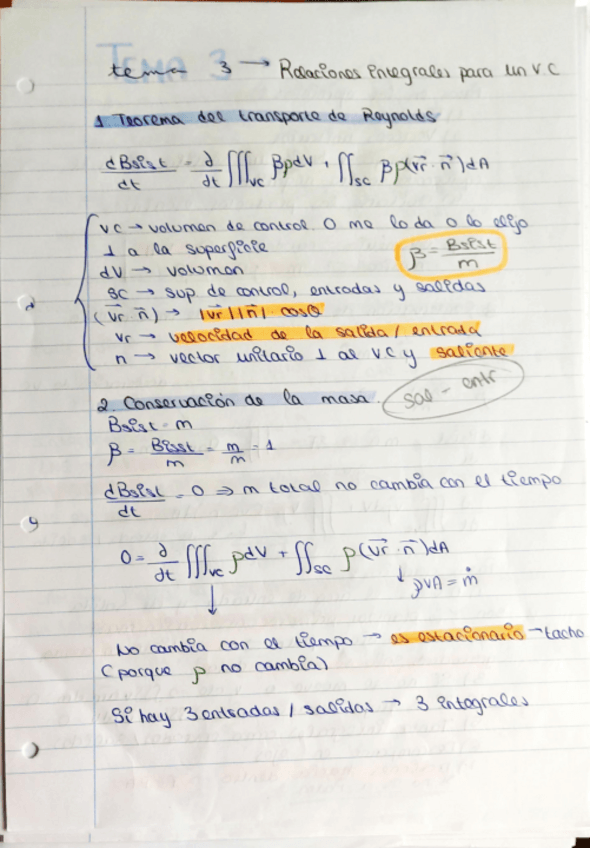 TEMA 3
tema 3 → Relaciones integrales para un V.C
1. Teorema del transporte de Reynolds
dBsist/dt = ∂/∂t ∭vc βρdV + ∬sc βρ(vr⃗ · n⃗)dA
VC → volumen de control. O me lo da o lo elijo
⊥ a la superficie
β = Bsist/m
dV → volumen
SC → sup de control, entradas y salidas
(vr⃗ · n⃗) → |vr⃗||n⃗| · cosθ
vr → velocidad de la salida / entrada
n → vector unitario ⊥ al VC y saliente
2. Conservación de la masa.
sal - entr
Bsist = m
β = Bsist/m = m/m = 1
dBsist/dt = 0 ⇒ m total no cambia con el tiempo
0 = ∂/∂t ∭vc ρdV + ∬sc ρ(vr⃗ · n⃗)dA
↓ ρVA = ṁ
↓
No cambia con el tiempo → es estacionario → tacho
(porque ρ no cambia)
Si hay 3 entradas / salidas → 3 integrales